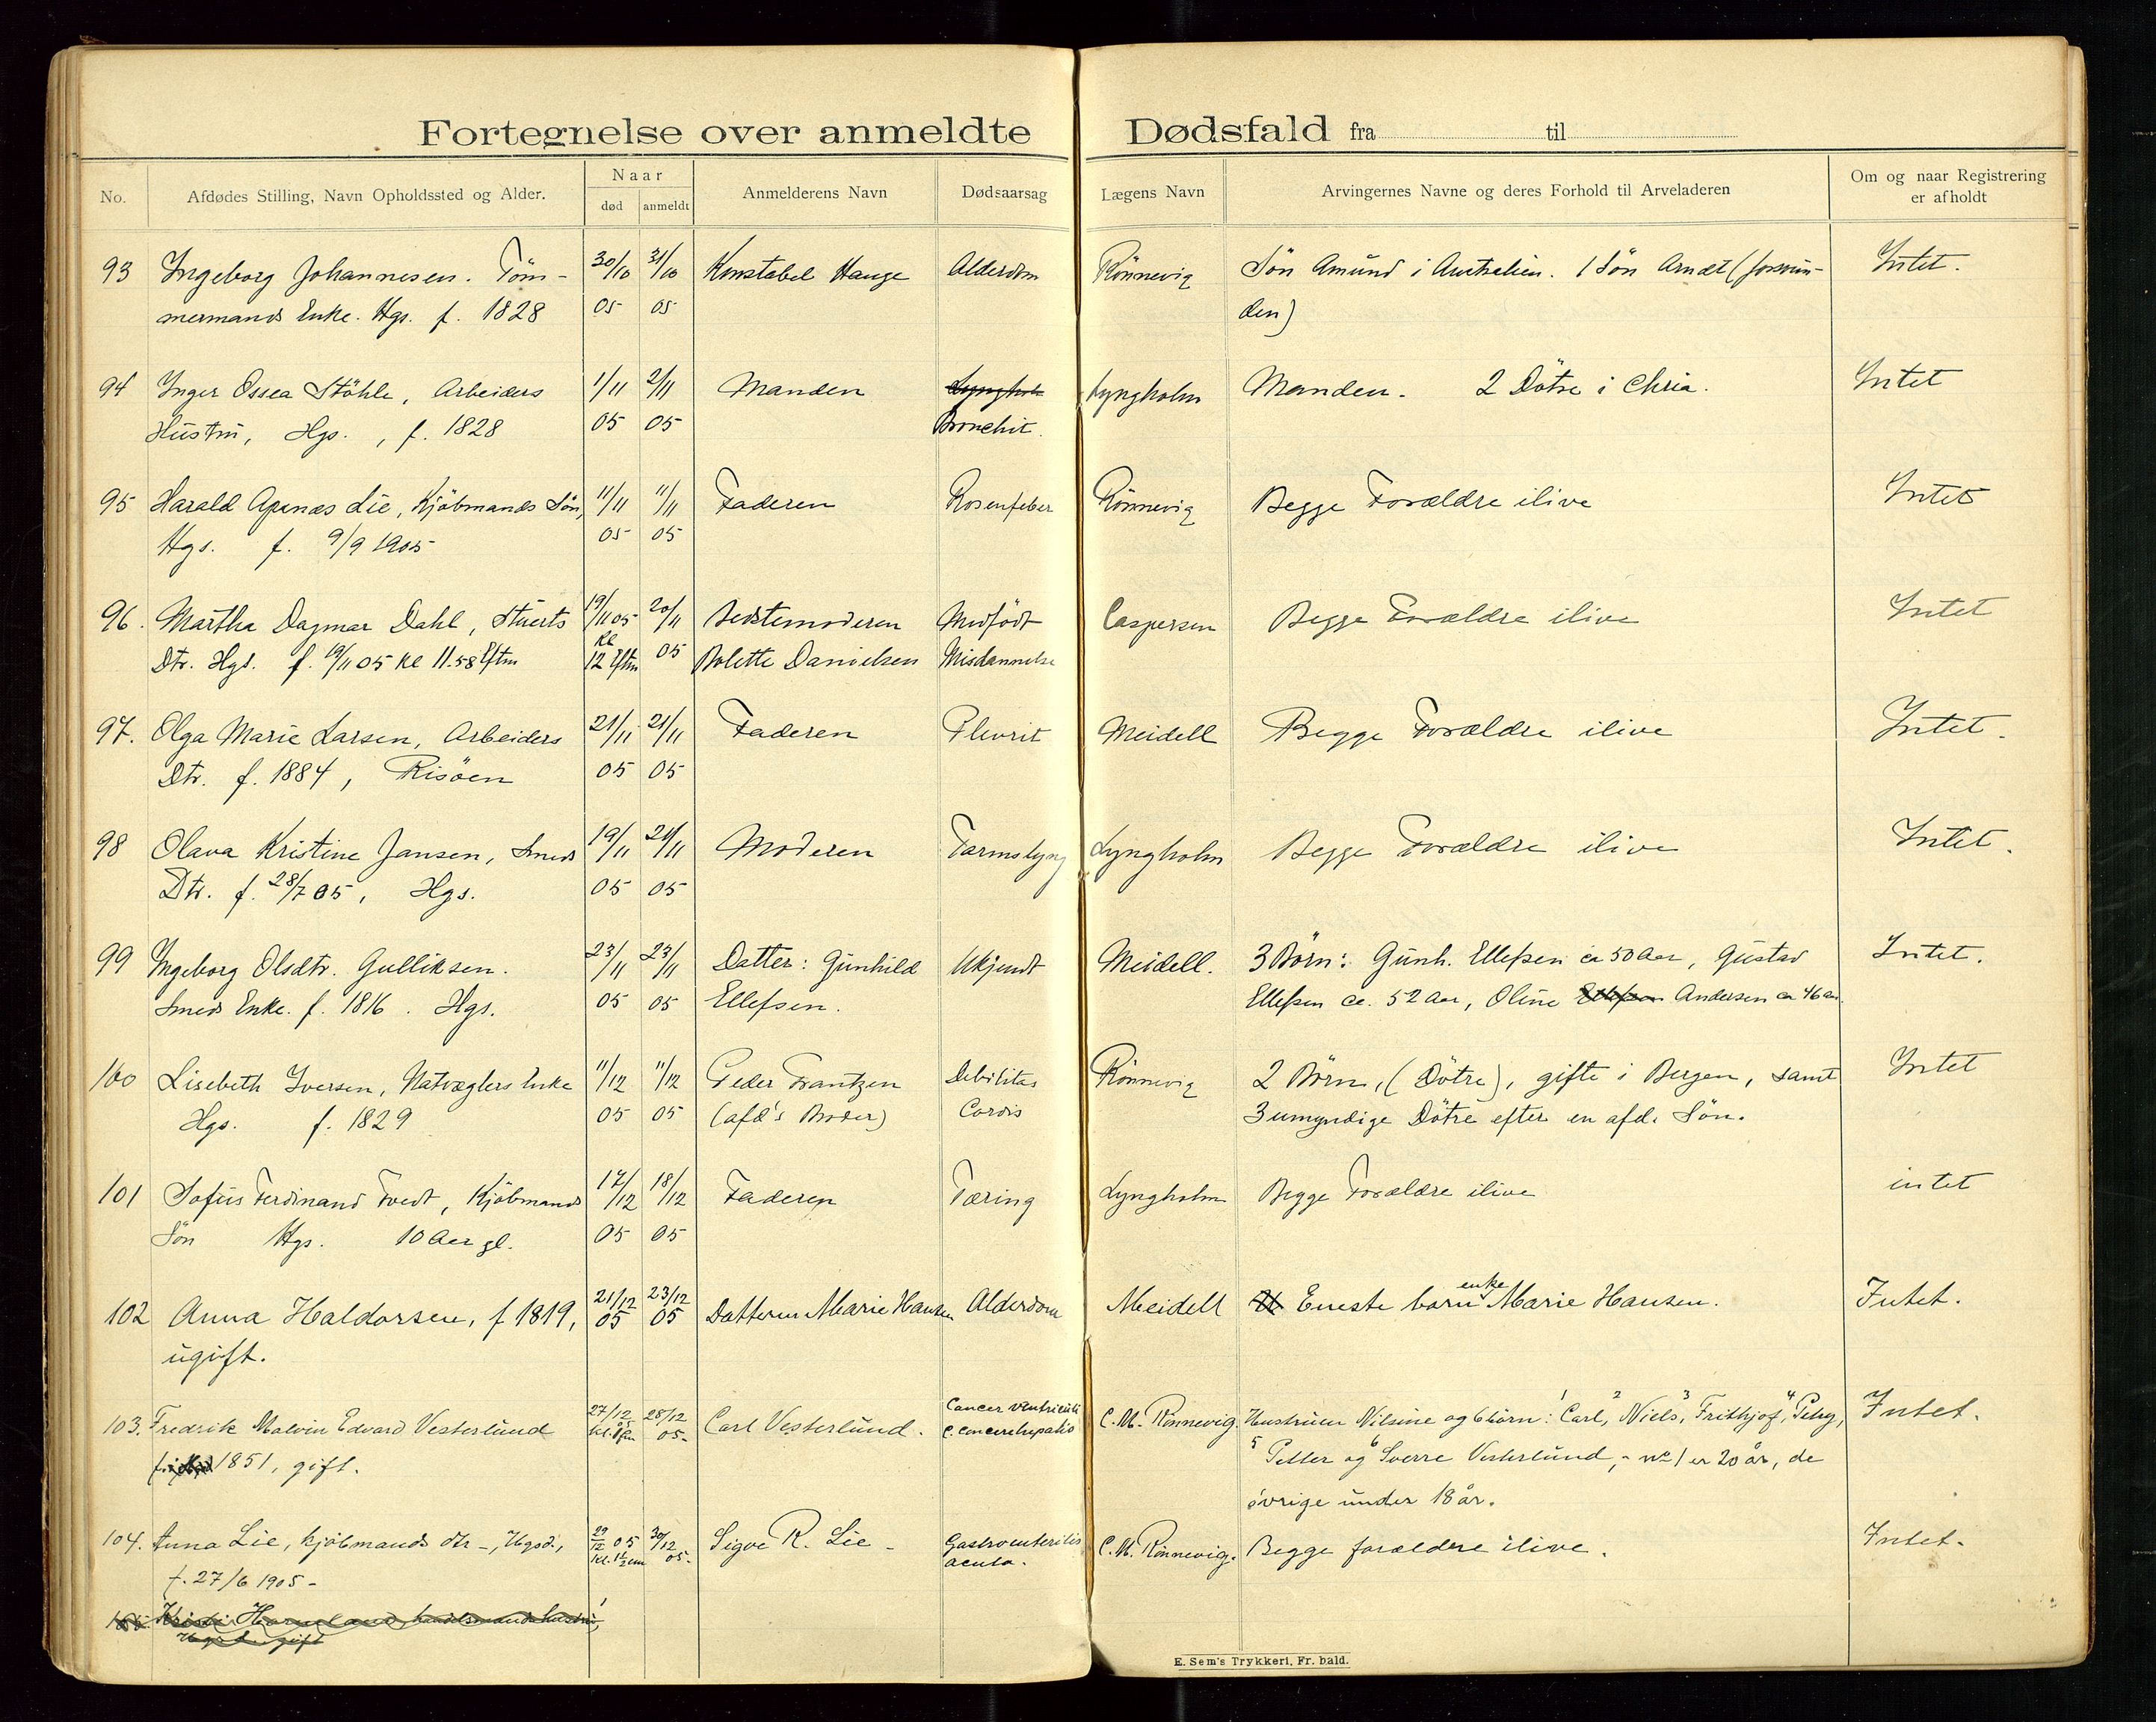 Fortegnelse over anmeldte Dødsfald fra til
No. Afdødes Stilling, Navn Opholdssted og Alder. Naar død anmeldt Anmelderens Navn Dødsaarsag Lægens Navn Arvingernes Navne og deres Forhold til Arveladeren Om og naar Registrering er afholdt
93 Ingeborg Johannesen. Töm- 30/10 31/10 Konstabel Hauge Alderdom Rönnevig Sön Amund i Australien. 1 Sön Arndt (forsvun- Intet.
mermands Enke. Hgs. f. 1828 05 05 den)
94 Inger Ossea Stöhle, Arbeiders 1/11 2/11 Manden Lyngholm Manden. 2 Dötre i Chria. Intet
Hustru, Hgs., f. 1828 05 05 Bronchit.
95 Harald Apenæs Lie, Kjöbmands Sön, 11/11 11/11 Faderen Rosenfeber Rönnevig Begge Forældre ilive Intet
Hgs. f. 9/9 1905 05 05
96. Martha Dagmar Dahl, Stuerts 19/11 05 20/11 Bedstemoderen Medfödt Caspersen Begge Forældre ilive Intet
Dtr. Hgs. f. 19/11 05 Kl 11.58 Eftm Kl 12 Eftm 05 Bolette Danielsen Misdannelse
97. Olga Marie Larsen, Arbeiders 21/11 21/11 Faderen Plevrit Meidell Begge Forældre ilive Intet.
Dtr. f. 1884, Risöen 05 05
98 Olava Kristine Jansen, Smeds 19/11 21/11 Moderen Tarmslyng Lyngholm Begge Forældre ilive Intet.
Dtr. f. 28/7 05, Hgs. 05 05
99 Ingeborg Olsdtr. Gulliksen. 23/11 23/11 Datter: Gunhild Ukjendt Meidell. 3 Börn: Gunh. Ellefsen ca 50 Aar, Gustav Intet.
Smeds Enke. f. 1816. Hgs. 05 05 Ellefsen. Ellefsen ca. 52 Aar, Oline Ellefsen Andersen ca 46 aar.
100 Lisebeth Iversen, Natvægters Enke 11/12 11/12 Peder Frantzen Debilitas Rönnevig 2 Börn, (Dötre), gifte i Bergen, samt Intet
Hgs. f. 1829 05 05 (afd's Broder) Cordis 3 umyndige Dötre efter en afd. Sön.
101 Sofus Ferdinand Tvedt, Kjöbmands 17/12 18/12 Faderen Tæring Lyngholm Begge Forældre ilive intet
Sön Hgs. 10 Aar gl. 05 05
102 Anna Haldorsen, f 1819, 21/12 05 23/12 05 Datteren Marie Hansen Alderdom Meidell Eneste barn enke Marie Hansen. Intet.
ugift.
103. Fredrik Malvin Edvard Vesterlund 27/12 05 28/12 05- Carl Vesterlund. Cancer ventriculi C. M. Rönnevig. Hustruen Nilsine og 6 börn: 1 Carl, 2 Niels, 3 Frithjof, 4 Petry, Intet.
1851, gift. 5 Petter og 6 Sverre Vesterlund, - no 1 er 20 år, de
övrige under 18 år.
104. Anna Lie, kjöbmands dtr -, Hgsd., 29/12 05 kl. 1½ em 30/12 05- Sigve R. Lie - Gastroenteritis acuta. C. M. Rönnevig. Begge forældre ilive. Intet.
f. 27/6 1905 -
105. Hgs gift
E. Sem's Trykkeri, Fr. hald.